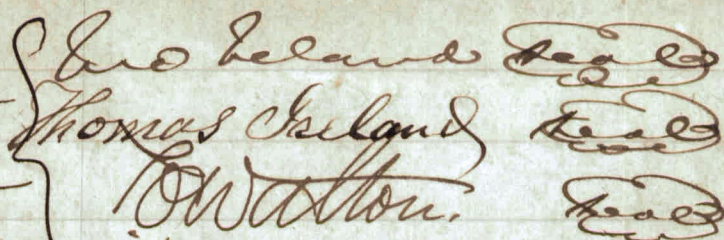 Jno Ireland seal
Thomas Ireland seal
Walton seal